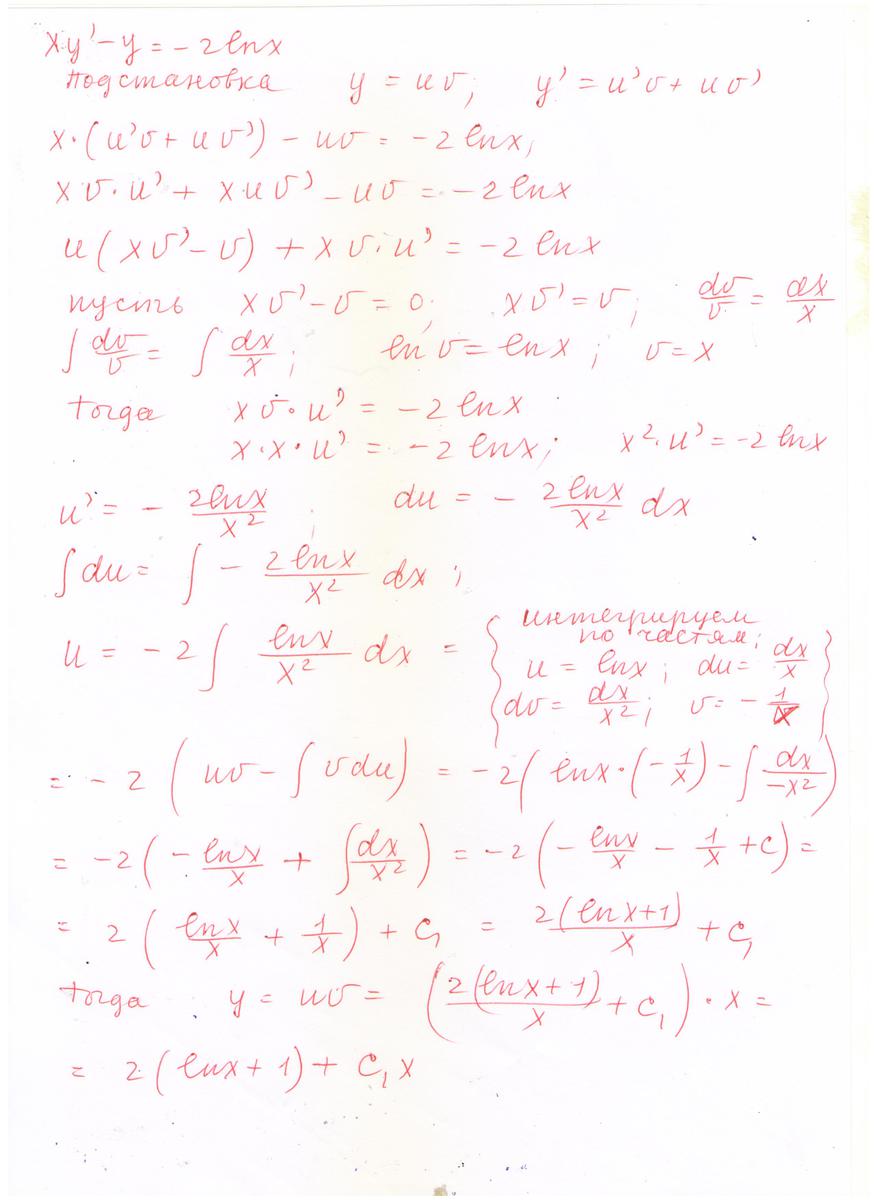 xy' - y = - 2 ln x
подстановка y = uv; y' = u'v + uv'
x·(u'v + uv') - uv = -2 ln x;
xv·u' + xuv' - uv = -2 ln x
u(xv' - v) + xv·u' = -2 ln x
пусть xv' - v = 0; xv' = v; dv/v = dx/x
∫ dv/v = ∫ dx/x; ln v = ln x; v = x
тогда xv·u' = -2 ln x
x·x·u' = -2 ln x; x²·u' = -2 ln x
u' = - 2lnx/x²; du = - 2lnx/x² dx
∫ du = ∫ - 2lnx/x² dx;
u = -2 ∫ lnx/x² dx = { интегрируем по частям; u = ln x; du = dx/x dv = dx/x²; v = - 1/x }
= -2 ( uv - ∫ v du ) = -2( ln x·(-1/x) - ∫ dx/-x² )
= -2( - lnx/x + ∫ dx/x² ) = -2( - lnx/x - 1/x + c) =
= 2 ( lnx/x + 1/x ) + C₁ = 2(ln x+1)/x + C₁
тогда y = uv = ( 2(ln x + 1)/x + C₁ ) · x =
= 2(ln x + 1) + C₁x